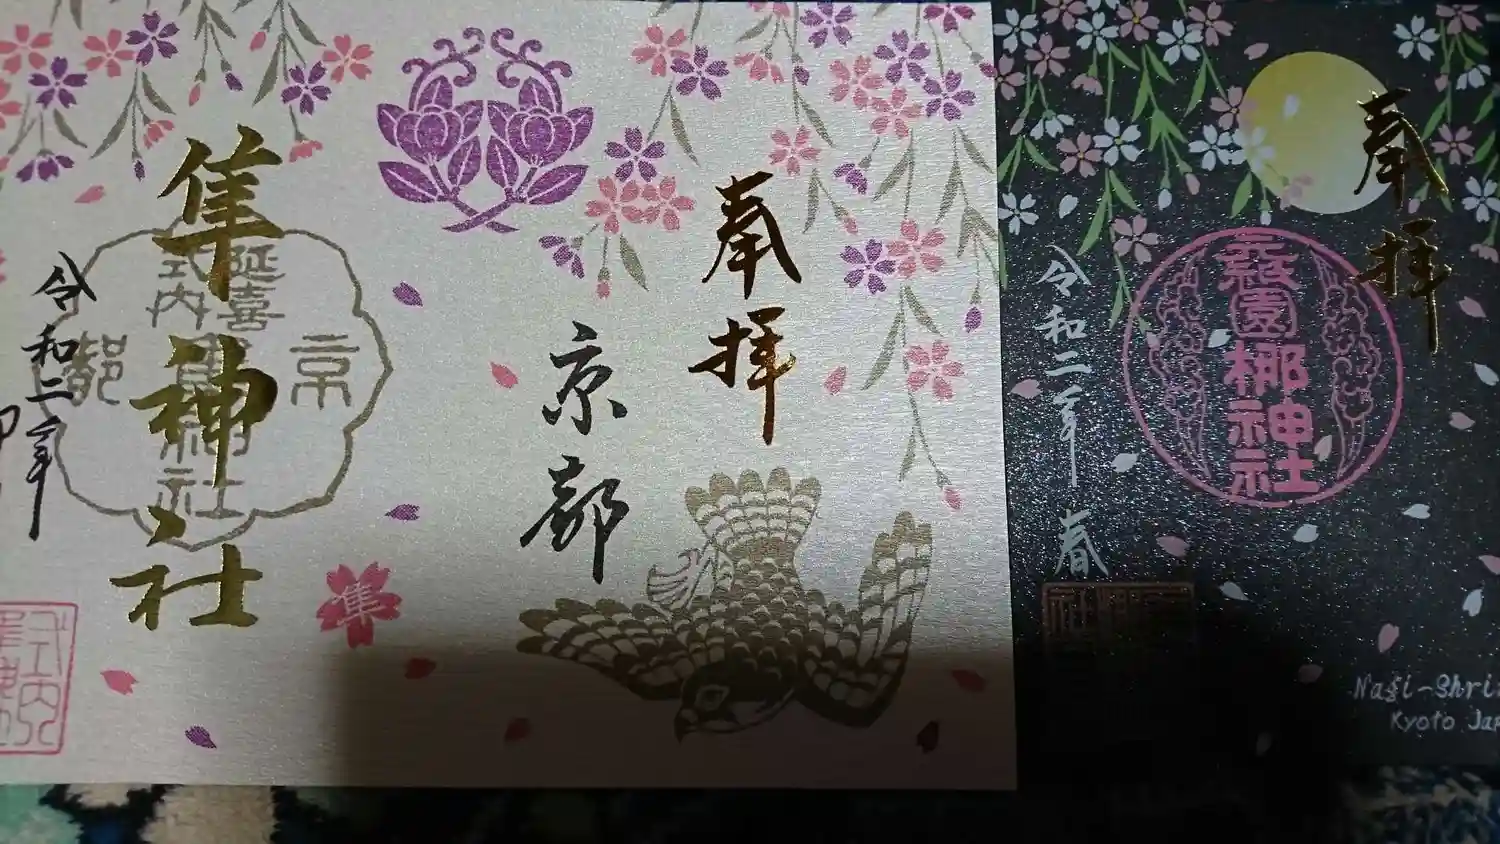 奉拝
京都
隼神社
令和二年
京都
延喜
式内
隼神社
隼
式内
奉拝
祇園
梛神社
令和二年
春
Nagi-Shri
Kyoto Jap